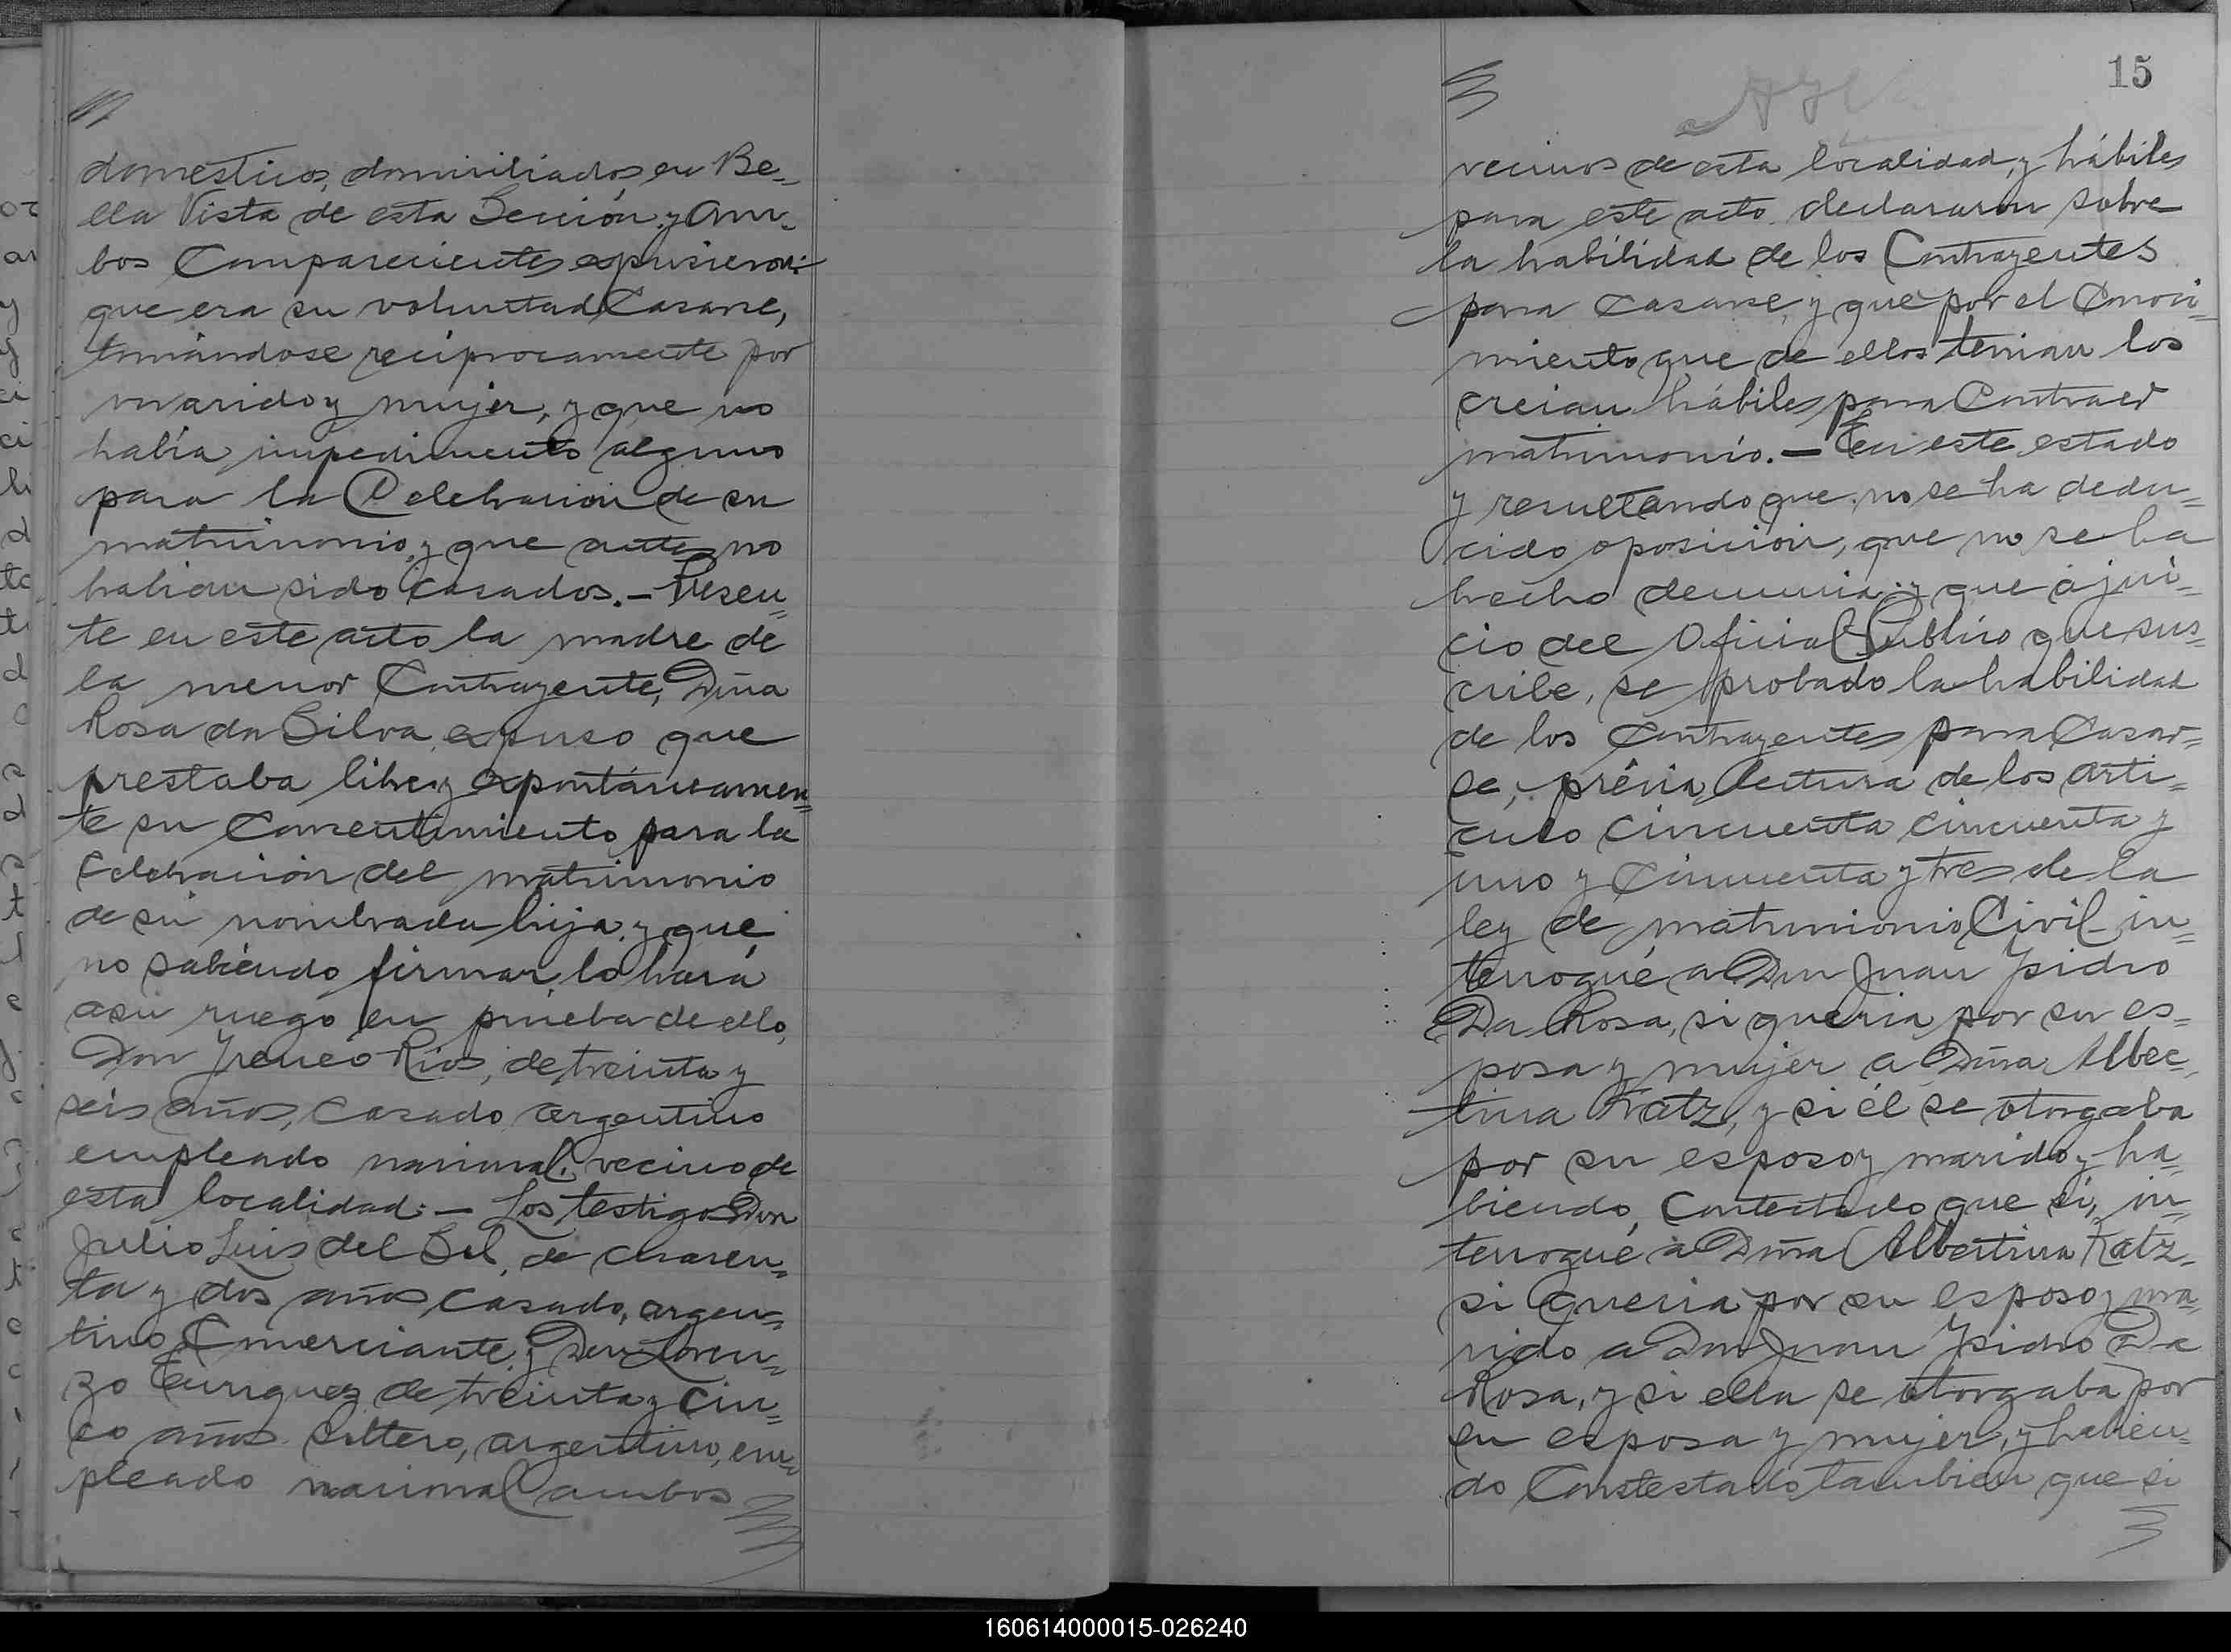 domesticos, domiciliados en Be-
lla Vista de esta Sección, y am-
bos Comparecientes expusieron:
que era su voluntad Casarse,
tomándose recíprocamente por
marido y mujer, y que no
había impedimento alguno
para la Celebracion de su
matrimonio, y que antes no
habian sido Casados.- Presen=
te en este acto la madre de
la menor Contrayente, Dña
Rosa da Silva, expuso que
prestaba libre y espontáneamen=
te su Consentimiento para la
Celebración del matrimonio
de su nombrada hija, y que
no sabiendo firmar, lo hará
a su ruego en prueba de ello,
Don Ireneo Rios, de treinta y
seis años, casado argentino
empleado nacional, vecino de
esta localidad.- Los testigos Don
Julio Luis del Sel, de cuaren=
ta y dos años casado, argen=
tino, Comerciante, y Don Loren=
zo Enriquez de treinta y cin=
co años. Soltero, argentino, em=
pleado nacional ambos
15
vecinos de esta localidad, y hábiles
para este acto declararon sobre
la habilidad de los Contrayentes
para Casarse, y que por el Conoci=
miento que de ellos tenian los
creian hábiles para Contraer
matrimonio.- En este estado
y resultando que, no se ha dedu=
cido oposicion, que no se ha
hecho denuncia, y que á jui=
cio del Oficial Publico que sus=
cribe, se probado la habilidad
de los Contrayentes para Casar=
se, prévia lectura de los arti=
culo cincuenta cincuenta y
uno y Cincuenta y tres de la
ley de matrimonio Civil in=
terrogué a Don Juan Ysidro
Da Rosa, si queria por su es=
posa y mujer a Dña Alber
tina Katz, y si él se otorgaba
por su esposo y marido, y ha=
biendo, Contestado que si, in=
terrogué a Dña Albertina Katz
si queria por su esposo y ma=
rido a Don Juan Ysidro Da
Rosa, y si ella se otorgaba por
su esposa y mujer, y habien=
do Constestado tambien que si
160614000015-026240